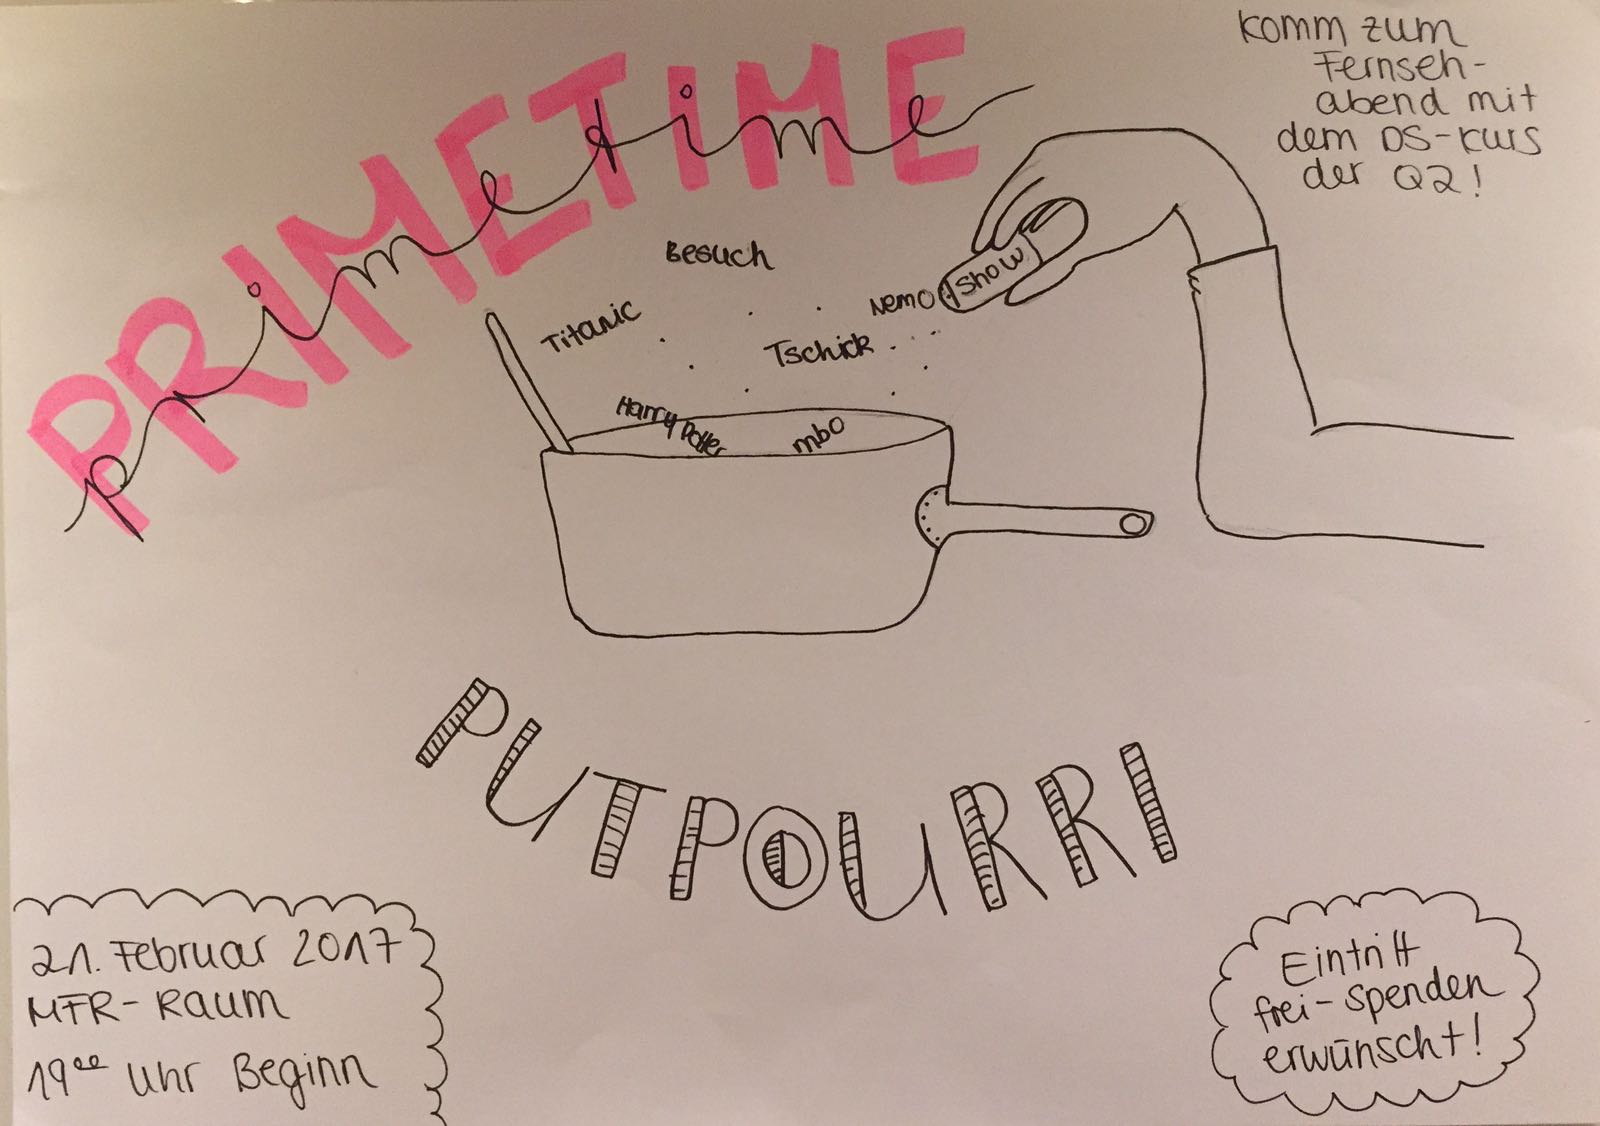 PRIMETIME
primetime
Komm zum
Fernseh-
abend mit
dem DS-Kurs
der Q2!
Besuch
Titanic
Nemo
Show
Tschick
Harry Potter
mbo
PUTPOURRI
21. Februar 2017
MFR-Raum
19⁰⁰ Uhr Beginn
Eintritt
frei-Spenden
erwünscht!